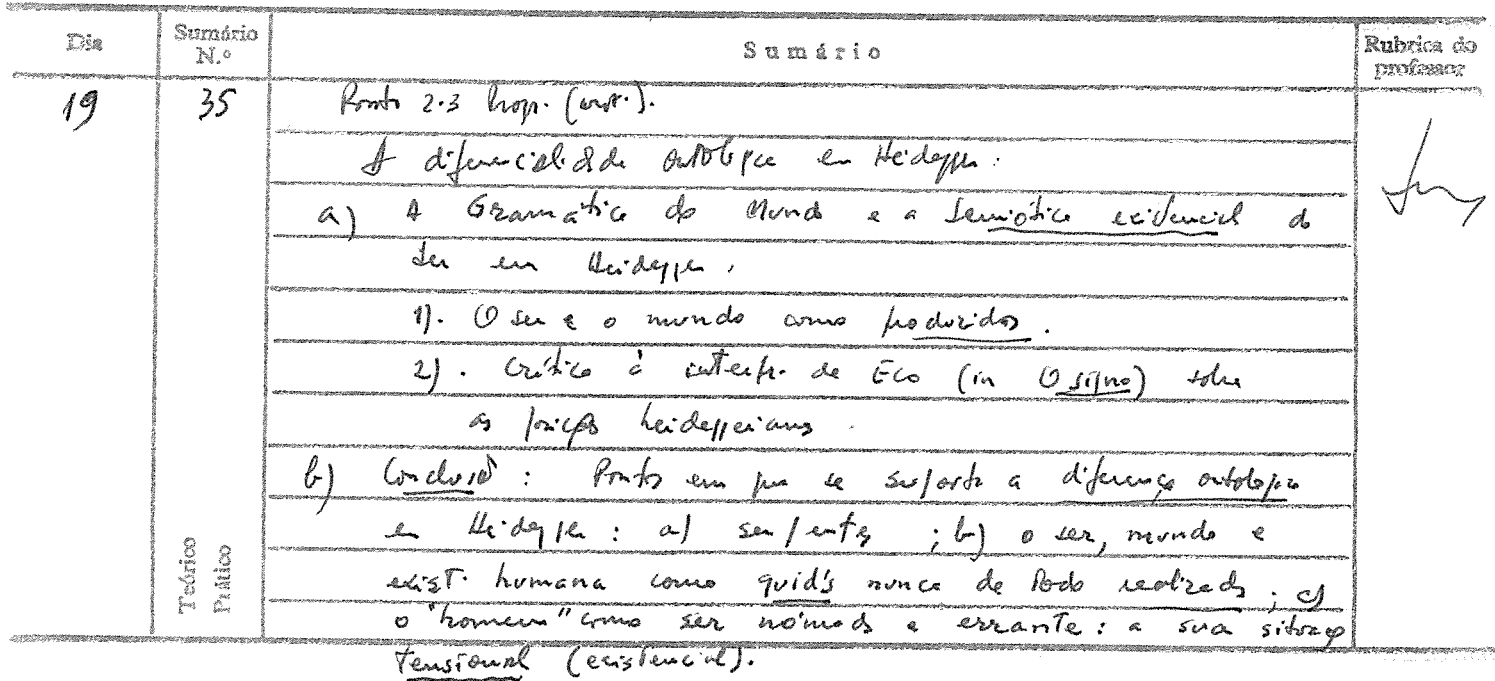 Dia
Sumário N.º
Sumário
Rubrica do professor
19
35
Ponto 2.3 Prop. (cont.).
A diferencialidade ontológica em Heidegger:
a) A Gramática do Mundo e a Semiótica existencial do
Ser em Heidegger.
1). O ser e o mundo como produzidos.
2). Crítica à interpr. de Eco (in O signo) sobre
as posições heideggerianas.
b) Conclusão: Pontos em que se suporta a diferença ontológica
em Heidegger: a) ser/entes; b) o ser, mundo e
exist. humana como quid's nunca de todo realizados; c)
o "homem" como ser nómada e errante: a sua situação
tensional (existencial).
Teórico
Prático